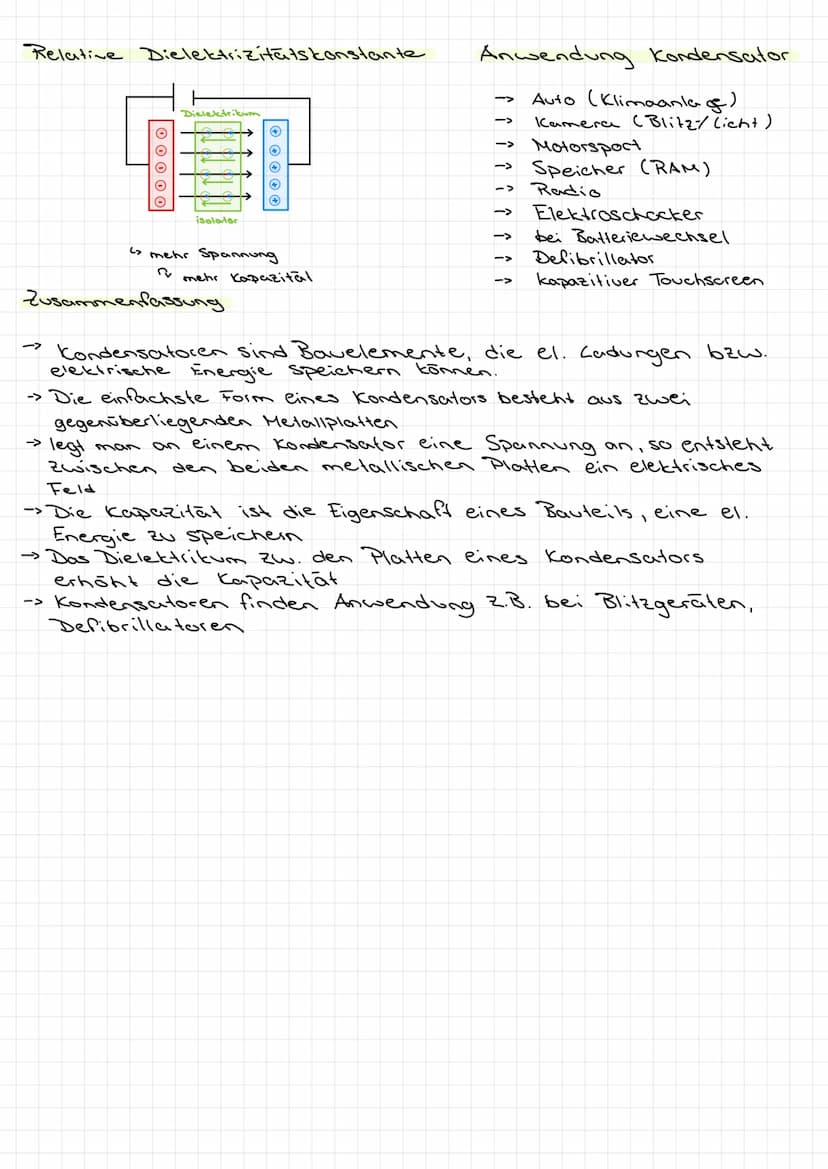 Relative Dielektrizitätskonstante
Dielektribum
isolator
↳ mehr Spannung
↷ mehr Kapazität
Anwendung Kondensator
→ Auto (Klimaanlage)
→ Kamera (Blitz/Licht)
→ Motorsport
→ Speicher (RAM)
→ Radio
→ Elektroschocker
→ bei Batteriewechsel
→ Defibrillator
→ kapazitiver Touchscreen
Zusammenfassung
→ Kondensatoren sind Bauelemente, die el. Ladungen bzw.
elektrische Energie speichern können.
→ Die einfachste Form eines Kondensators besteht aus zwei
gegenüberliegenden Metallplatten
→ legt man an einem Kondensator eine Spannung an, so entsteht
zwischen den beiden metallischen Platten ein elektrisches
Feld
→ Die Kapazität ist die Eigenschaft eines Bauteils, eine el.
Energie zu speichern
→ Das Dielektrikum zw. den Platten eines Kondensators
erhöht die Kapazität
→ Kondensatoren finden Anwendung z.B. bei Blitzgeräten,
Defibrillatoren